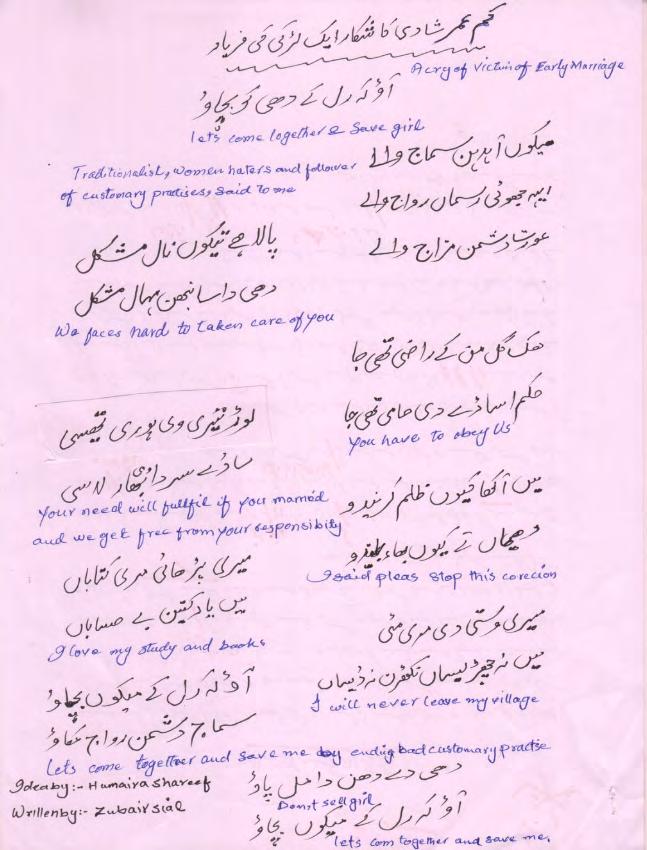 کم عمر شادی کا شکار ایک لڑکی کی فریاد
A cry of Victim of Early Marriage
آؤ کہ رل کے دھی کو بچاؤ
let's come together & Save girl
میکوں آہدن سماج والے
ایہہ جھوٹی رسماں رواج والے
عورت دشمن مزاج والے
Traditionalist, women haters and follower
of customary practises, said to me
پالا ہے تیکوں نال مشکل
دھی دا سانبھن بہال مشکل
We faces hard to taken care of you
هک گل من کے راضی تھی جا
حکم اساڈے دی حامی تھی جا
You have to obey Us
لوڑ تیری وی پوری تھیسی
ساڈے سر دا بھار لاسی
Your need will fullfil if you married
and we get free from your responsibity
میں آکھا کیوں ظلم کریندو
دھیاں تے کیوں بھاء بلیندو
I said pleas stop this corecion
میری پڑھائی مری کتاباں
میں یاد کیتن بے حساباں
I love my study and books
میری وستی دی مری مٹی
میں نہ چھڑیساں نکھڑن نہ ڈیساں
I will never leave my village
آؤ کہ رل کے میکوں بچاؤ
سماج دشمن رواج مکاؤ
Lets come together and save me by ending bad customary practse
دھی دے دھن دا مل پاؤ
Don,t sell girl
آؤ کہ رل کے میکوں بچاؤ
lets com together and save me.
Idea by:- Humaira Shareef
Wrillen by:- Zubair sial